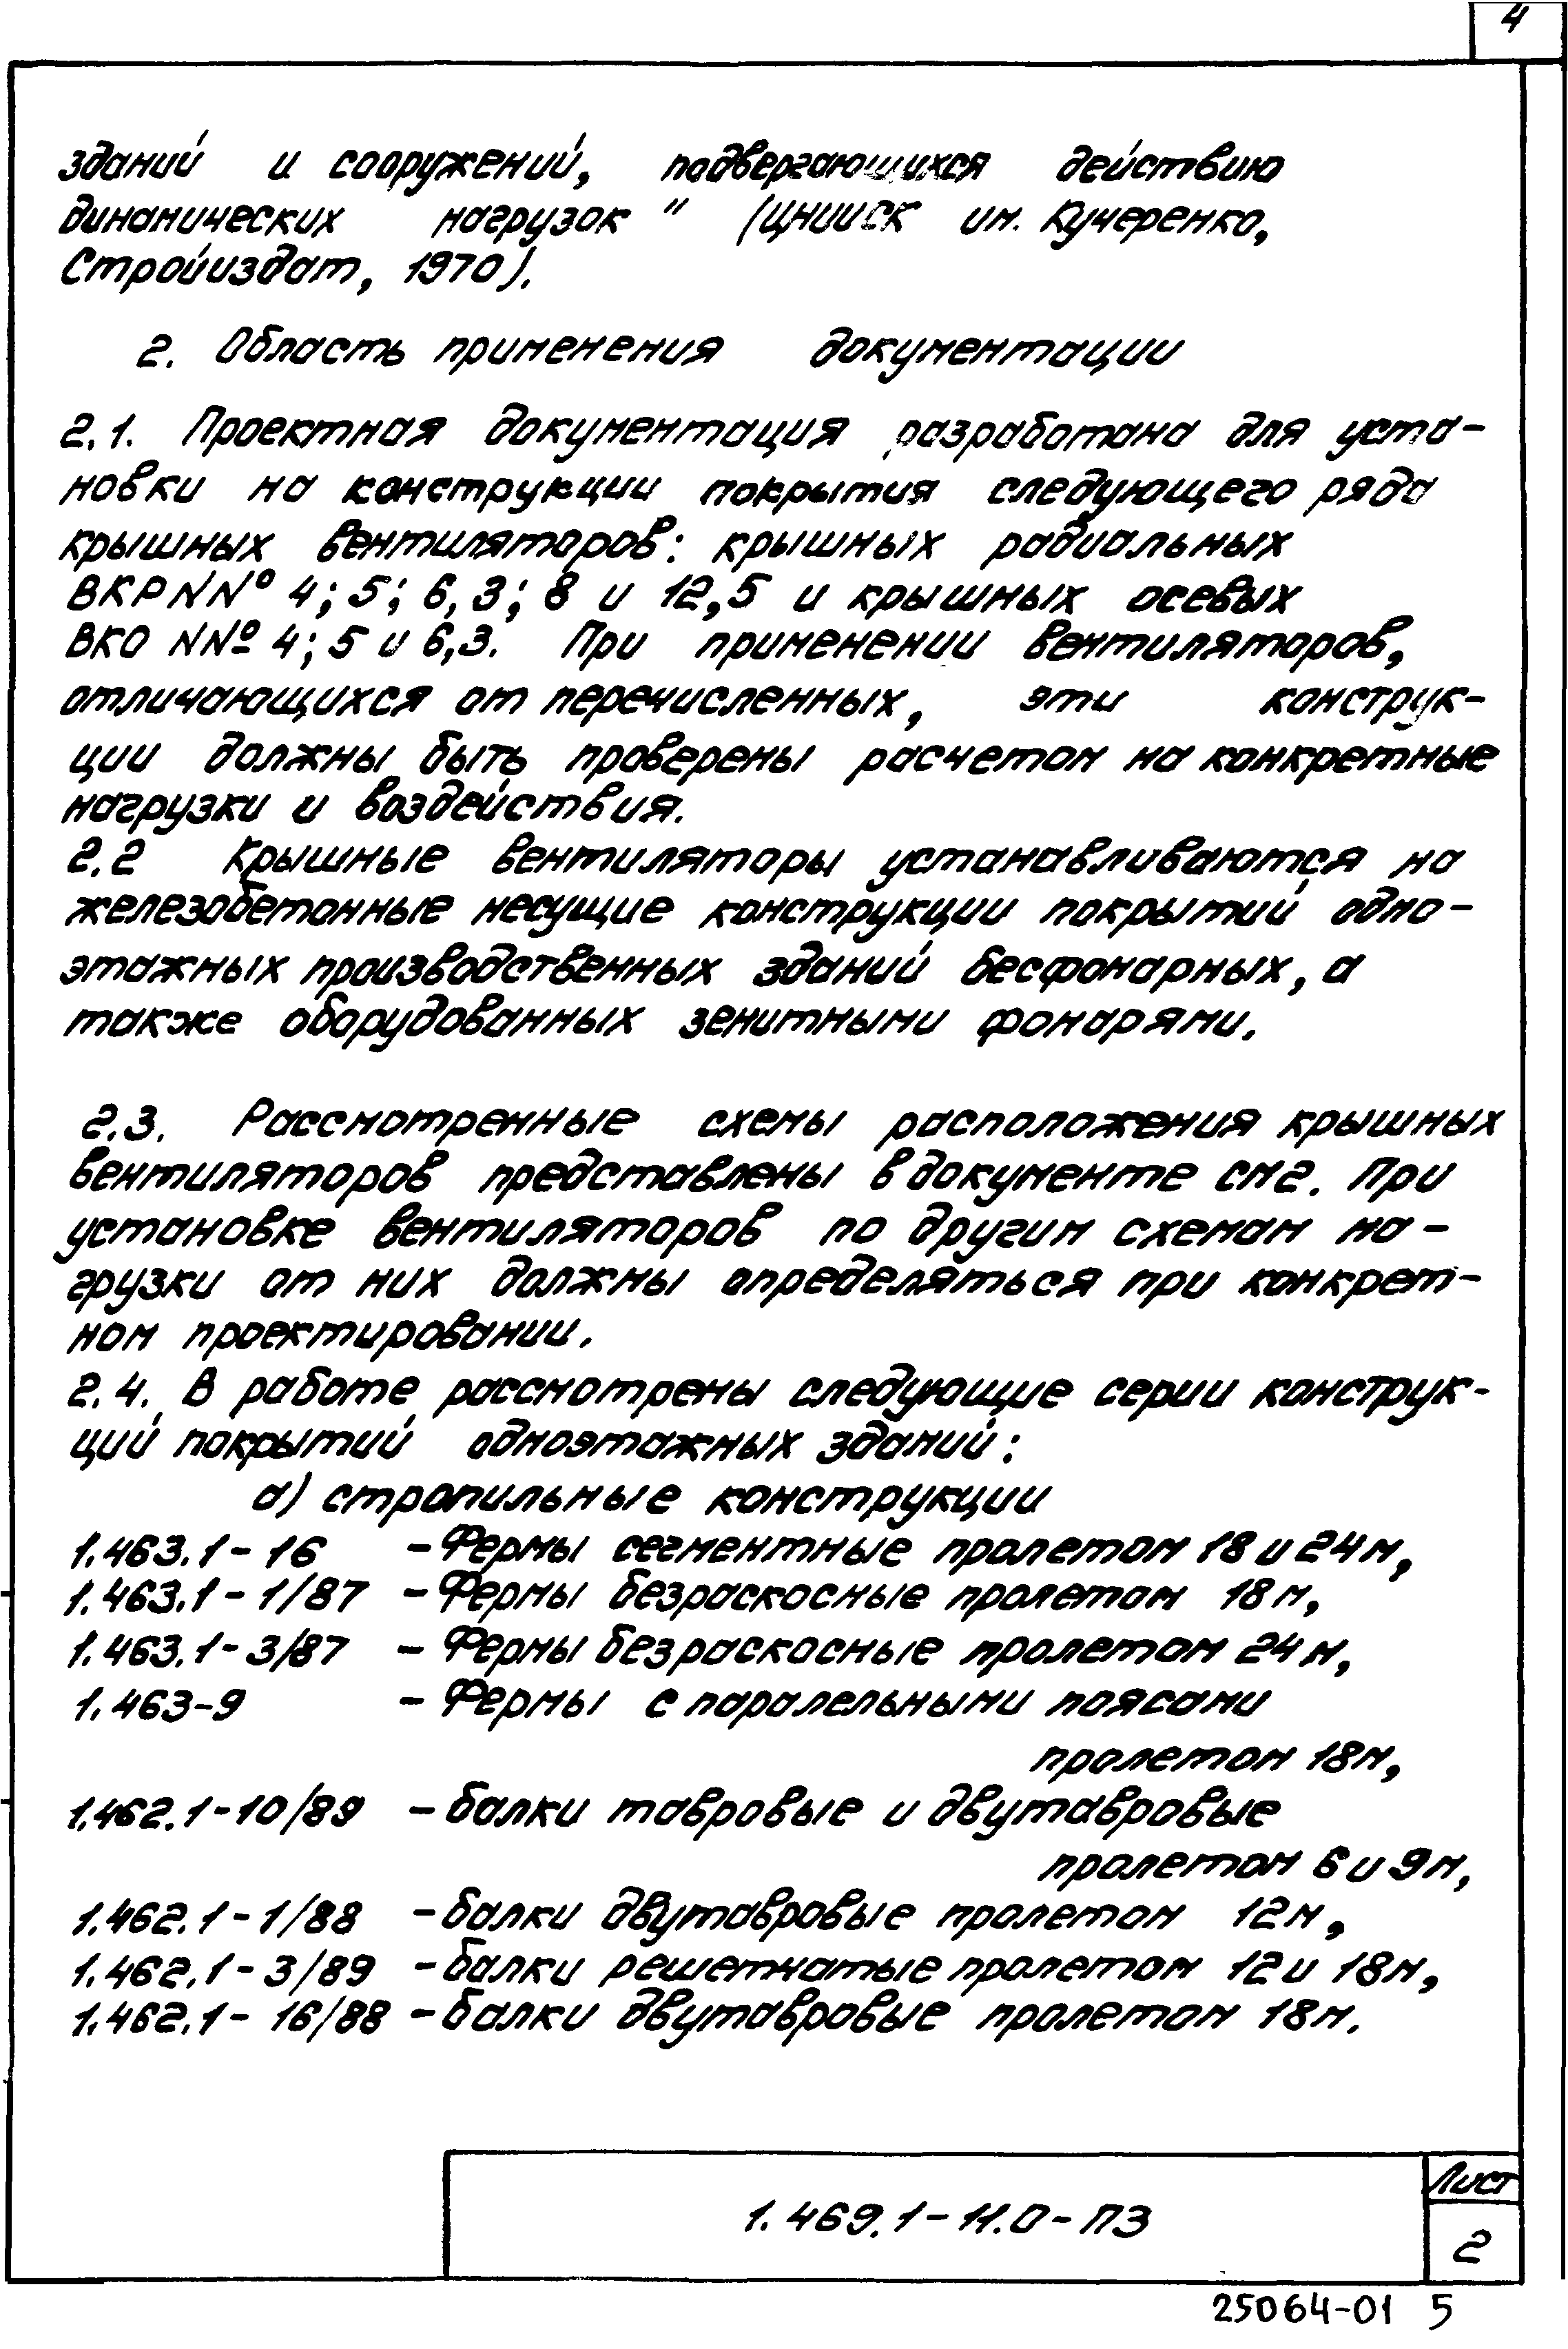 4
зданий и сооружений, подвергающихся действию
динамических нагрузок" (ЦНИИСК им. Кучеренко,
Стройиздат, 1970).
2. Область применения документации
2.1. Проектная документация разработана для уста-
новки на конструкции покрытия следующего ряда
крышных вентиляторов: крышных радиальных
ВКР NNº 4; 5; 6,3; 8 и 12,5 и крышных осевых
ВКО NNº 4; 5 и 6,3. При применении вентиляторов,
отличающихся от перечисленных, эти конструк-
ции должны быть проверены расчетом на конкретные
нагрузки и воздействия.
2.2 Крышные вентиляторы устанавливаются на
железобетонные несущие конструкции покрытий одно-
этажных производственных зданий бесфонарных, а
также оборудованных зенитными фонарями.
2.3. Рассмотренные схемы расположения крышных
вентиляторов представлены в документе СМ2. При
установке вентиляторов по другим схемам на-
грузки от них должны определяться при конкрет-
ном проектировании.
2.4. В работе рассмотрены следующие серии конструк-
ций покрытий одноэтажных зданий:
а) стропильные конструкции
1.463.1-16 - Фермы сегментные пролетом 18 и 24 м,
1.463.1-1/87 - Фермы безраскосные пролетом 18 м,
1.463.1-3/87 - Фермы безраскосные пролетом 24 м,
1.463-9 - Фермы с паралельными поясами
пролетом 18м,
1.462.1-10/89 - балки тавровые и двутавровые
пролетом 6 и 9м,
1.462.1-1/88 - балки двутавровые пролетом 12м,
1.462.1-3/89 - балки решетчатые пролетом 12 и 18м,
1.462.1-16/88 - балки двутавровые пролетом 18м.
1.469.1-11.0-ПЗ
Лист
2
25064-01 5